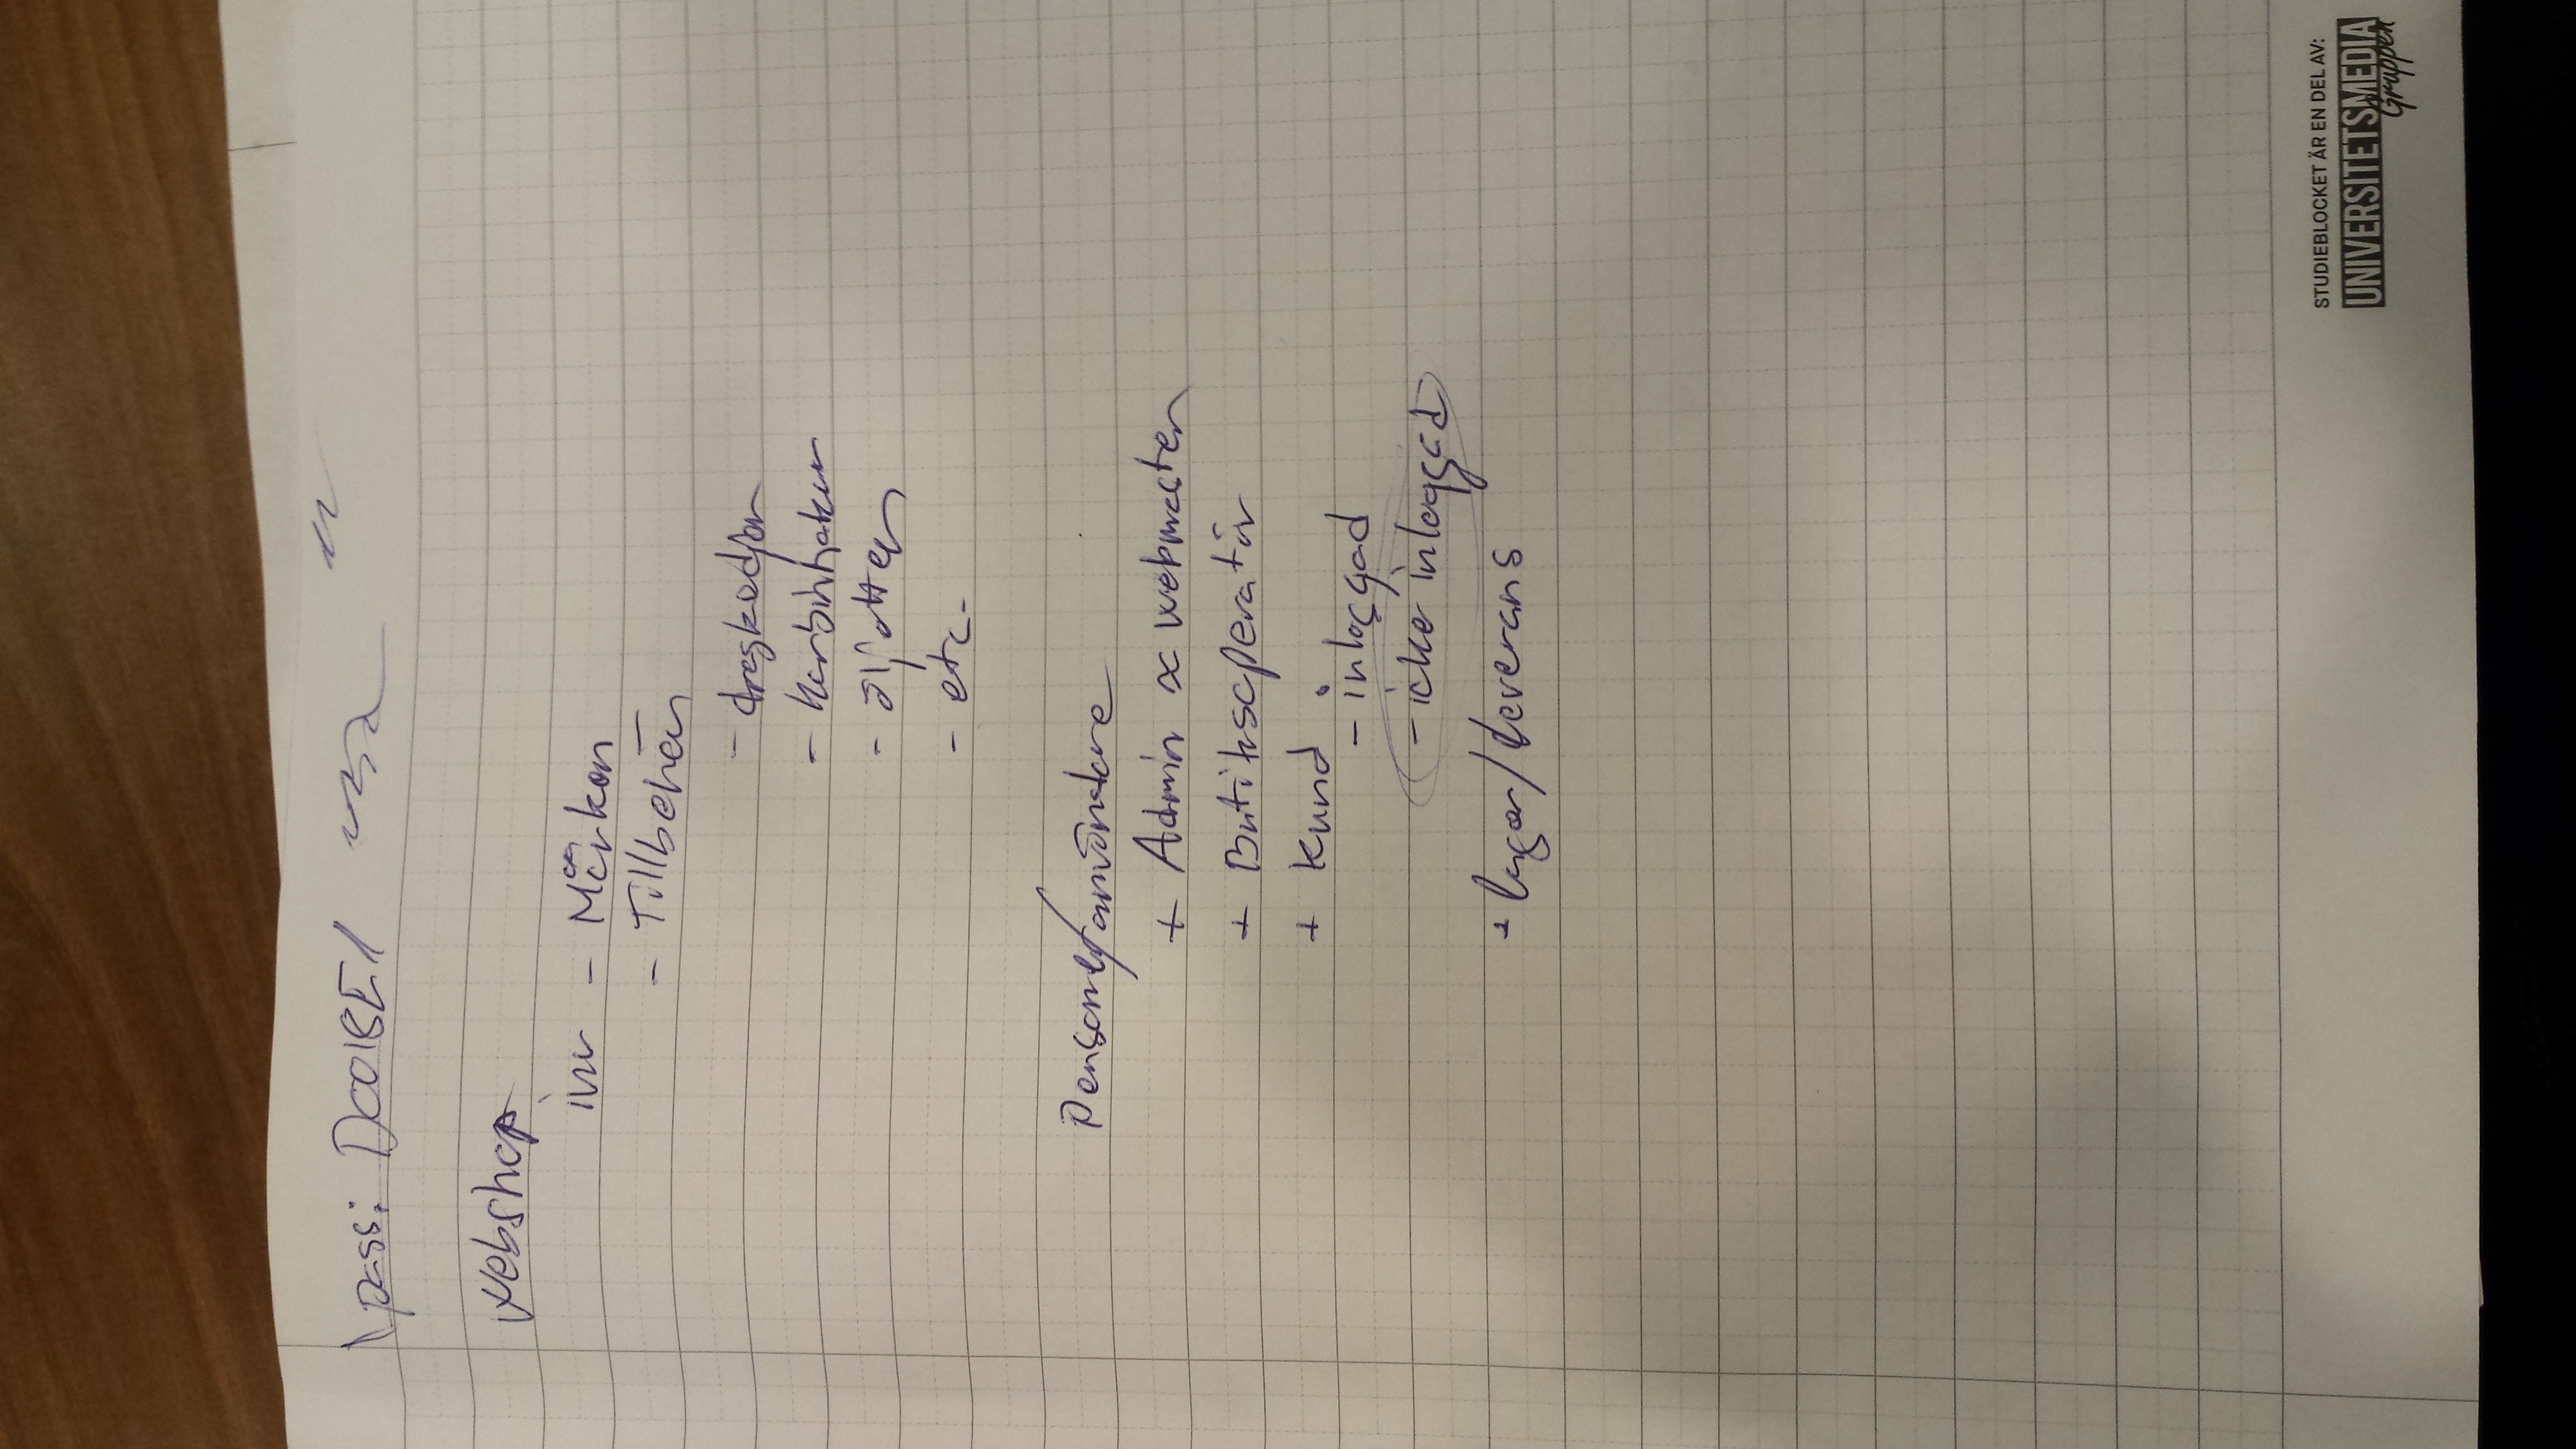 pass: D0018E1
Webshop
inv - Märken
- Tillbehör
- dragkedjor
- karbinhakar
- öljetter
- etc.
Personer/användare
+ Admin ∝ webmaster
+ Butiksoperatör
+ Kund
- inloggad
- icke inloggad
+ lager/leverans
STUDIEBLOCKET ÄR EN DEL AV:
UNIVERSITETSMEDIA
Gruppen